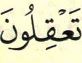 تَعْقِلُونَ